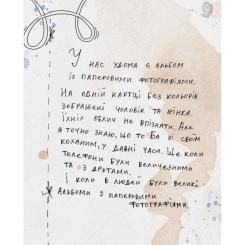 У нас удома є альбом
із паперовими фотографіями.
На одній картці без кольорів
зображені чоловік та жінка.
Їхніх облич не впізнати. Але
я точно знаю, що то Ба зі своїм
коханим, у давні часи. Ще коли
телефони були величезними
та з дротами.
І коли в людей були великі
альбоми з паперовими
фотографіями.